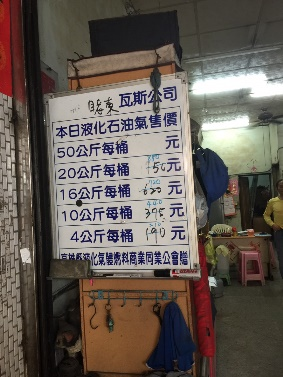 瓦斯公司
本日液化石油氣售價
50公斤每桶 元
20公斤每桶 750元
16公斤每桶 元
10公斤每桶 395元
4公斤每桶 190元
高雄縣液化氣體燃料商業同業公會贈